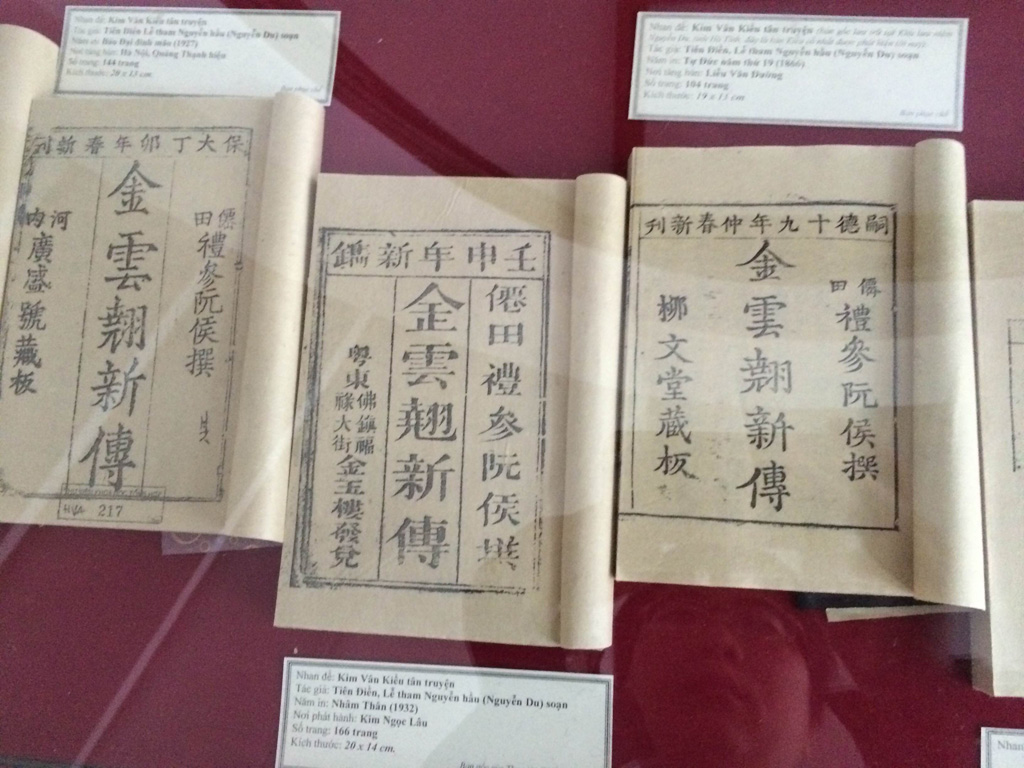 Nhan đề: Kim Vân Kiều tân truyện
Tác giả: Tiên Điền Lễ tham Nguyễn hầu (Nguyễn Du) soạn
Năm in: Bảo Đại đinh mão (1927)
Nơi tàng bản: Hà Nội, Quảng Thạnh hiệu
Số trang: 144 trang
Kích thước: 20 x 13 cm
Bản phục chế
保大丁卯年春新刊
僊田禮參阮侯撰
金雲翹新傳
河內廣盛號藏板
217
Nhan đề: Kim Vân Kiều tân truyện
Tác giả: Tiên Điền, Lễ tham Nguyễn hầu (Nguyễn Du) soạn
Năm in: Tự Đức năm thứ 19 (1866)
Nơi tàng bản: Liễu Văn Đường
Số trang: 104 trang
Kích thước: 19 x 13 cm
Bản phục chế
壬申年新鐫
僊田禮參阮侯撰
金雲翹新傳
粵東佛鎮福祿大街金玉樓發兌
嗣德十九年仲春新刊
僊田禮參阮侯撰
金雲翹新傳
柳文堂蔵板
Nhan đề: Kim Vân Kiều tân truyện
Tác giả: Tiên Điền, Lễ tham Nguyễn hầu (Nguyễn Du) soạn
Năm in: Nhâm Thân (1932)
Nơi phát hành: Kim Ngọc Lâu
Số trang: 166 trang
Kích thước: 20 x 14 cm.
Nhan